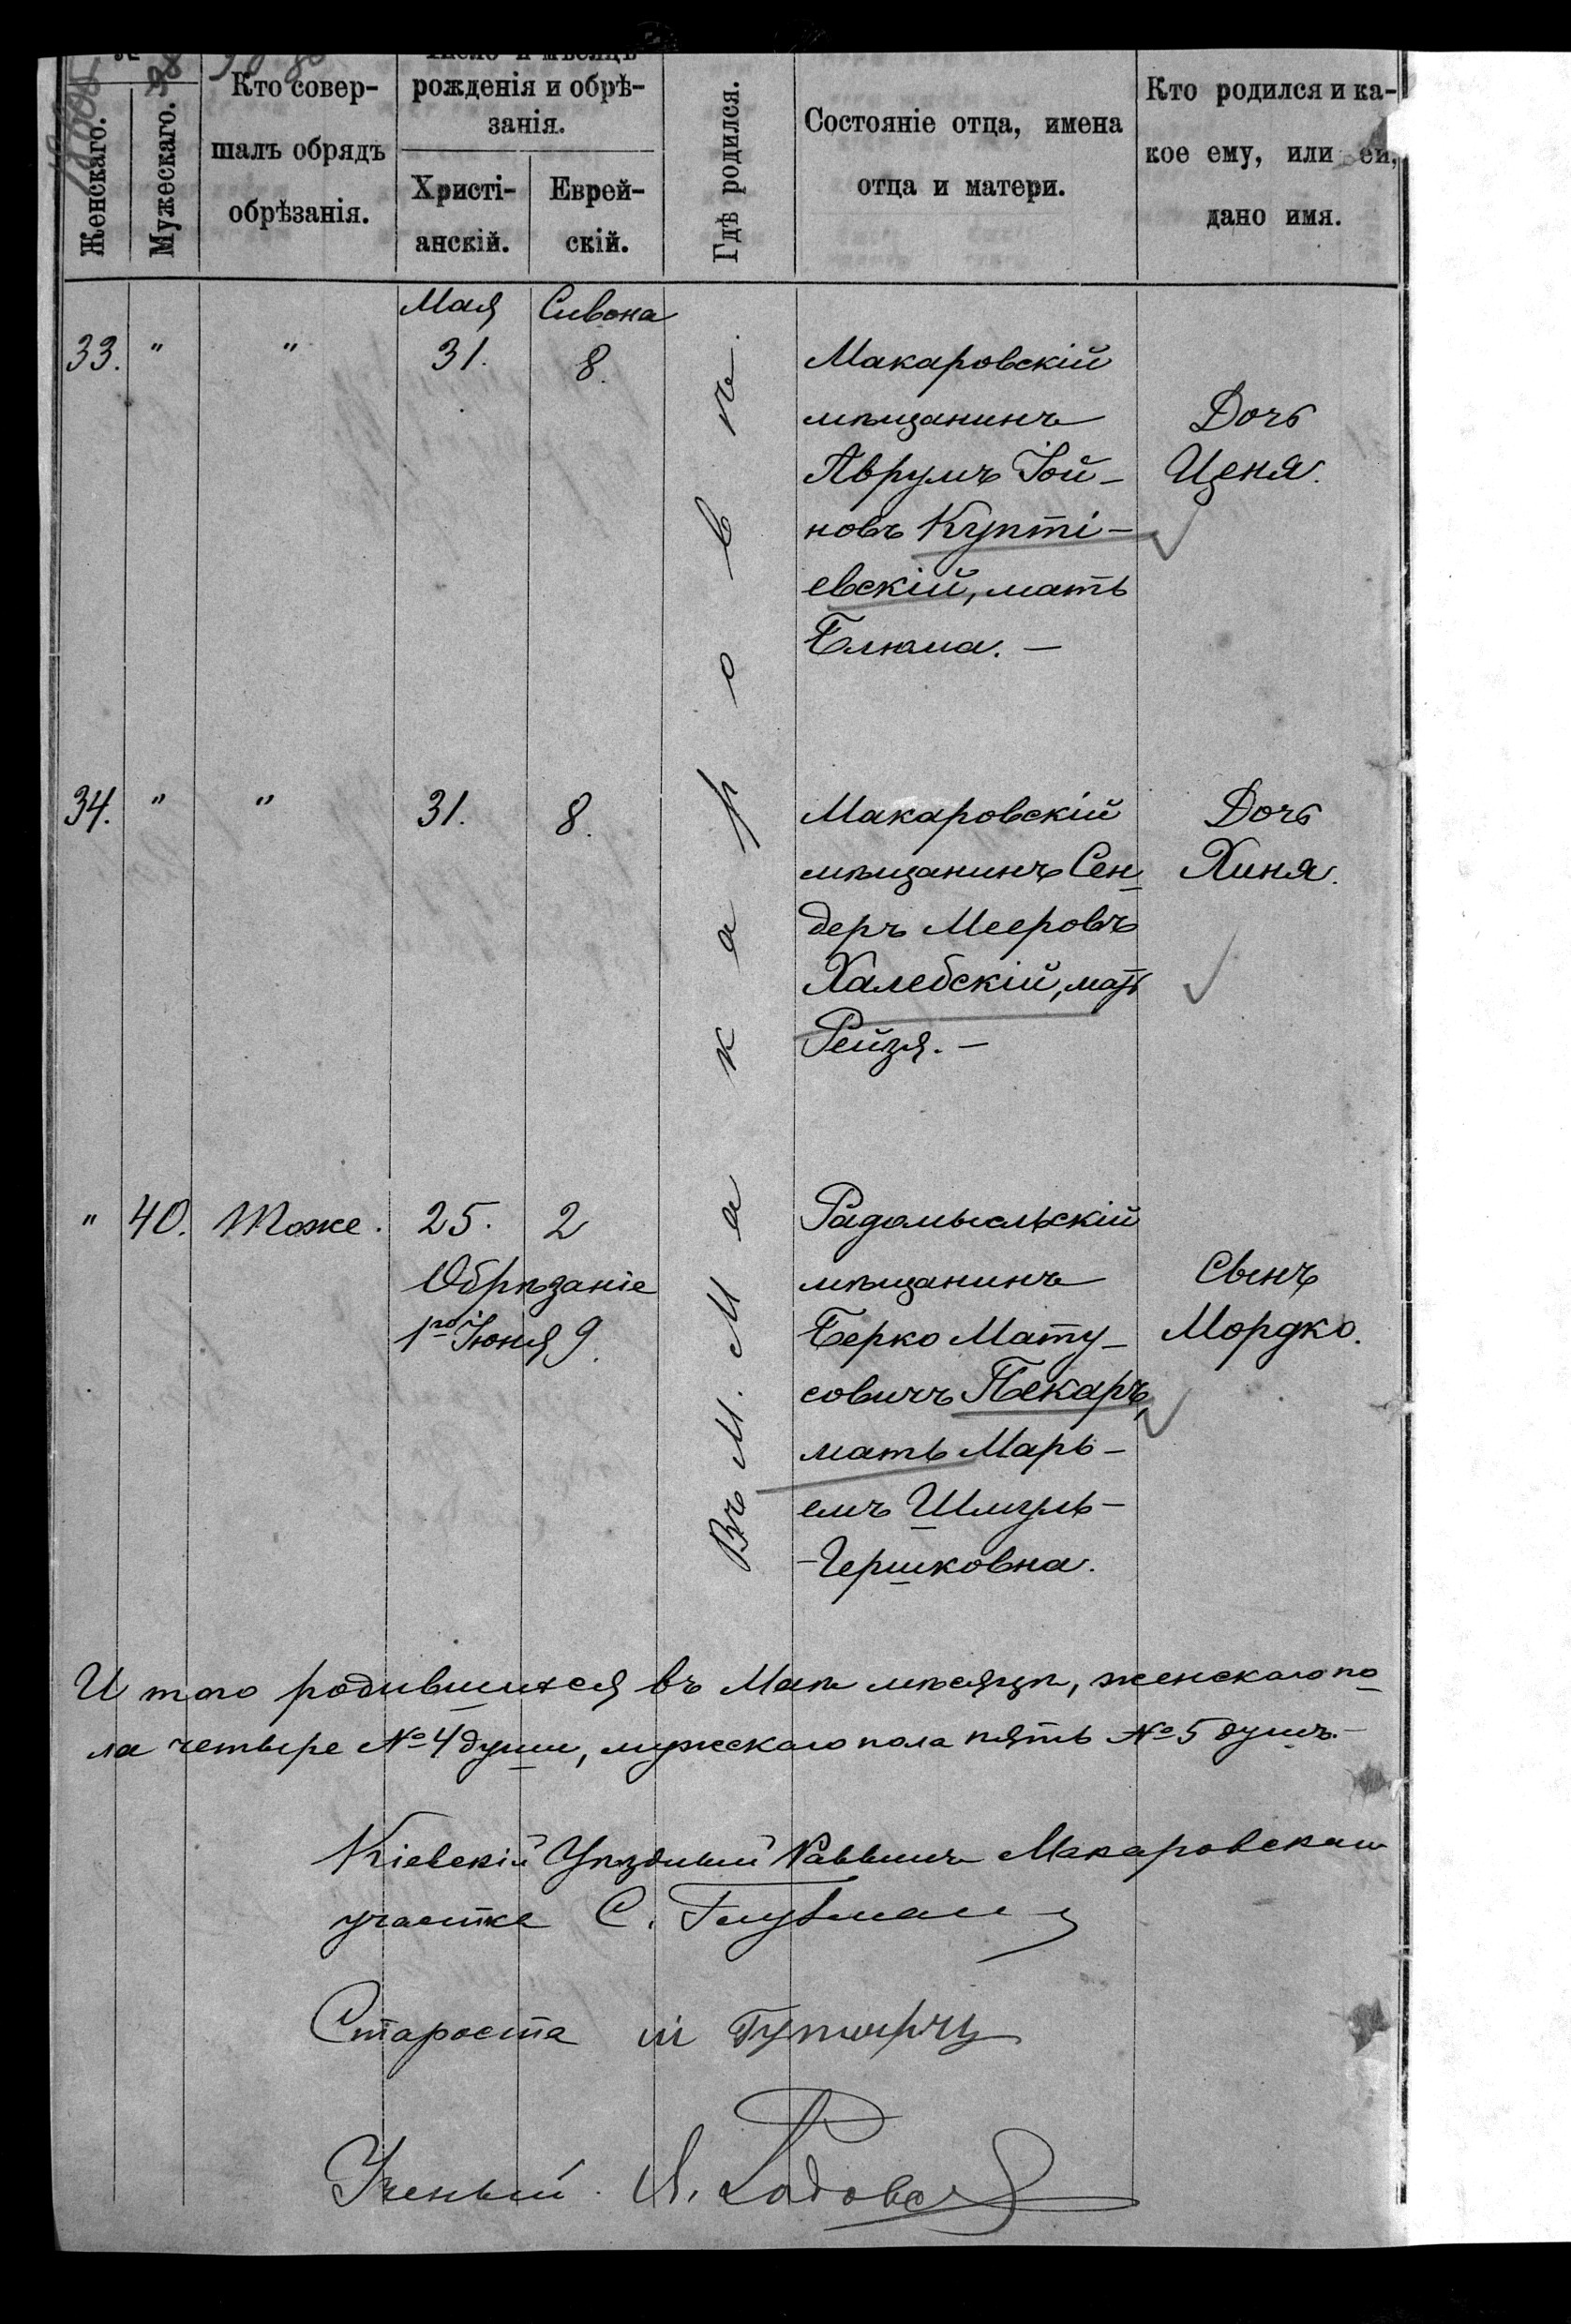 Женскаго.
Мужескаго.
Кто совер-
шалъ обрядъ
обрѣзанія.
рожденія и обрѣ-
занія.
Христі-
анскій.
Еврей-
скій.
Гдѣ родился.
Состояніе отца, имена
отца и матери.
Кто родился и ка-
кое ему, или ей,
дано имя.
Мая Сивона
33. " " 31. 8.
Макаровскій
мѣщанинъ
Аврумъ Іой-
новъ Купті-
евскій, мать
Блюма. —
Дочь
Ценя.
34. " " 31. 8.
Макаровскій
мѣщанинъ Сен-
деръ Мееровъ
Халебскій, мать
Рейзя. —
Дочь
Хиня.
" 40. Тоже. 25. 2
Обрѣзаніе
1го Іюня 9.
Радомысльскій
мѣщанинъ
Берко Мату-
совичъ Пекаръ,
мать Марь-
емъ Шмуль-
-Гершковна.
Сынъ
Мордко.
Въ М. Макаровѣ.
Итого родившихся въ Маѣ мѣсяцѣ, женскаго по-
ла четыре № 4 души, мужескаго пола пять № 5 душъ. —
Кіевскій Уѣздный Раввинъ Макаровскаго
участка С.
Староста
Ученый